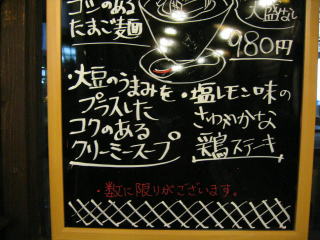 コシのある
たまご麺
大盛なし
980円
・大豆のうまみを
プラスした
コクのある
クリーミースープ
・塩レモン味の
さわやかな
鶏ステーキ
・数に限りがございます。